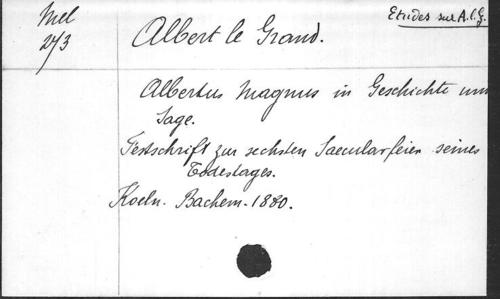 Mel
273
Albert le Grand.
Etudes sur A.l.G.
Albertus Magnus in Geschichte und
Sage.
Festschrift zur sechsten Saecularfeier seines
Todestages.
Koeln. Bachem. 1880.